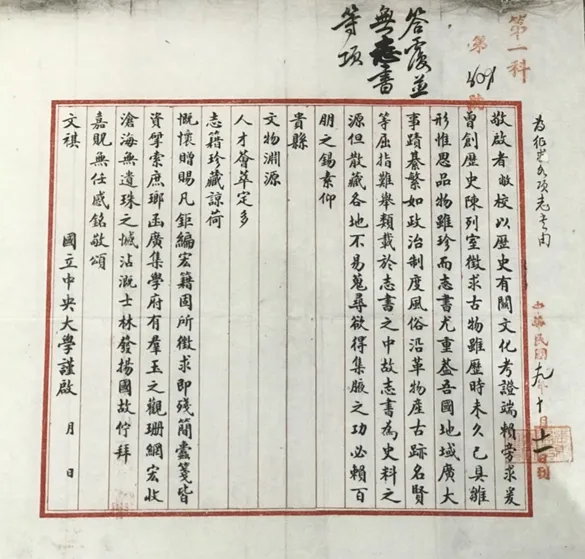 第一科
第 號
為征求各項志書由
中華民國十九年十月十一日到
答覆並
無志書
等項
敬啟者敝校以歷史有關文化考證端賴旁求爰
曾創歷史陳列室徵求古物雖歷時未久已具雛
形惟思品物雖珍而志書尤重蓋吾國地域廣大
事蹟綦繁如政治制度風俗沿革物產古跡名賢
等屈指難舉類載於志書之中故志書為史料之
源但散藏各地不易蒐尋欲得集腋之功必賴百
朋之錫素仰
貴縣
文物淵源
人才薈萃定多
志籍珍藏諒荷
慨懷贈賜凡鉅編宏籍固所徵求即殘簡蠹箋皆
資揅索庶瑯函廣集學府有羣玉之觀珊網宏收
滄海無遺珠之憾沾溉士林發揚國故佇拜
嘉貺無任感銘敬頌
文祺 國立中央大學謹啟 月 日